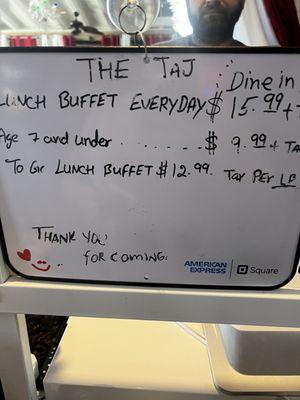 THE TAJ
Dine in
LUNCH BUFFET EVERYDAY $ 15.99 +
Age 7 and under ........ $ 9.99 + TA
To Go LUNCH BUFFET $12.99. TAX PER LB
THANK YOU
FOR COMING.
AMERICAN EXPRESS
Square